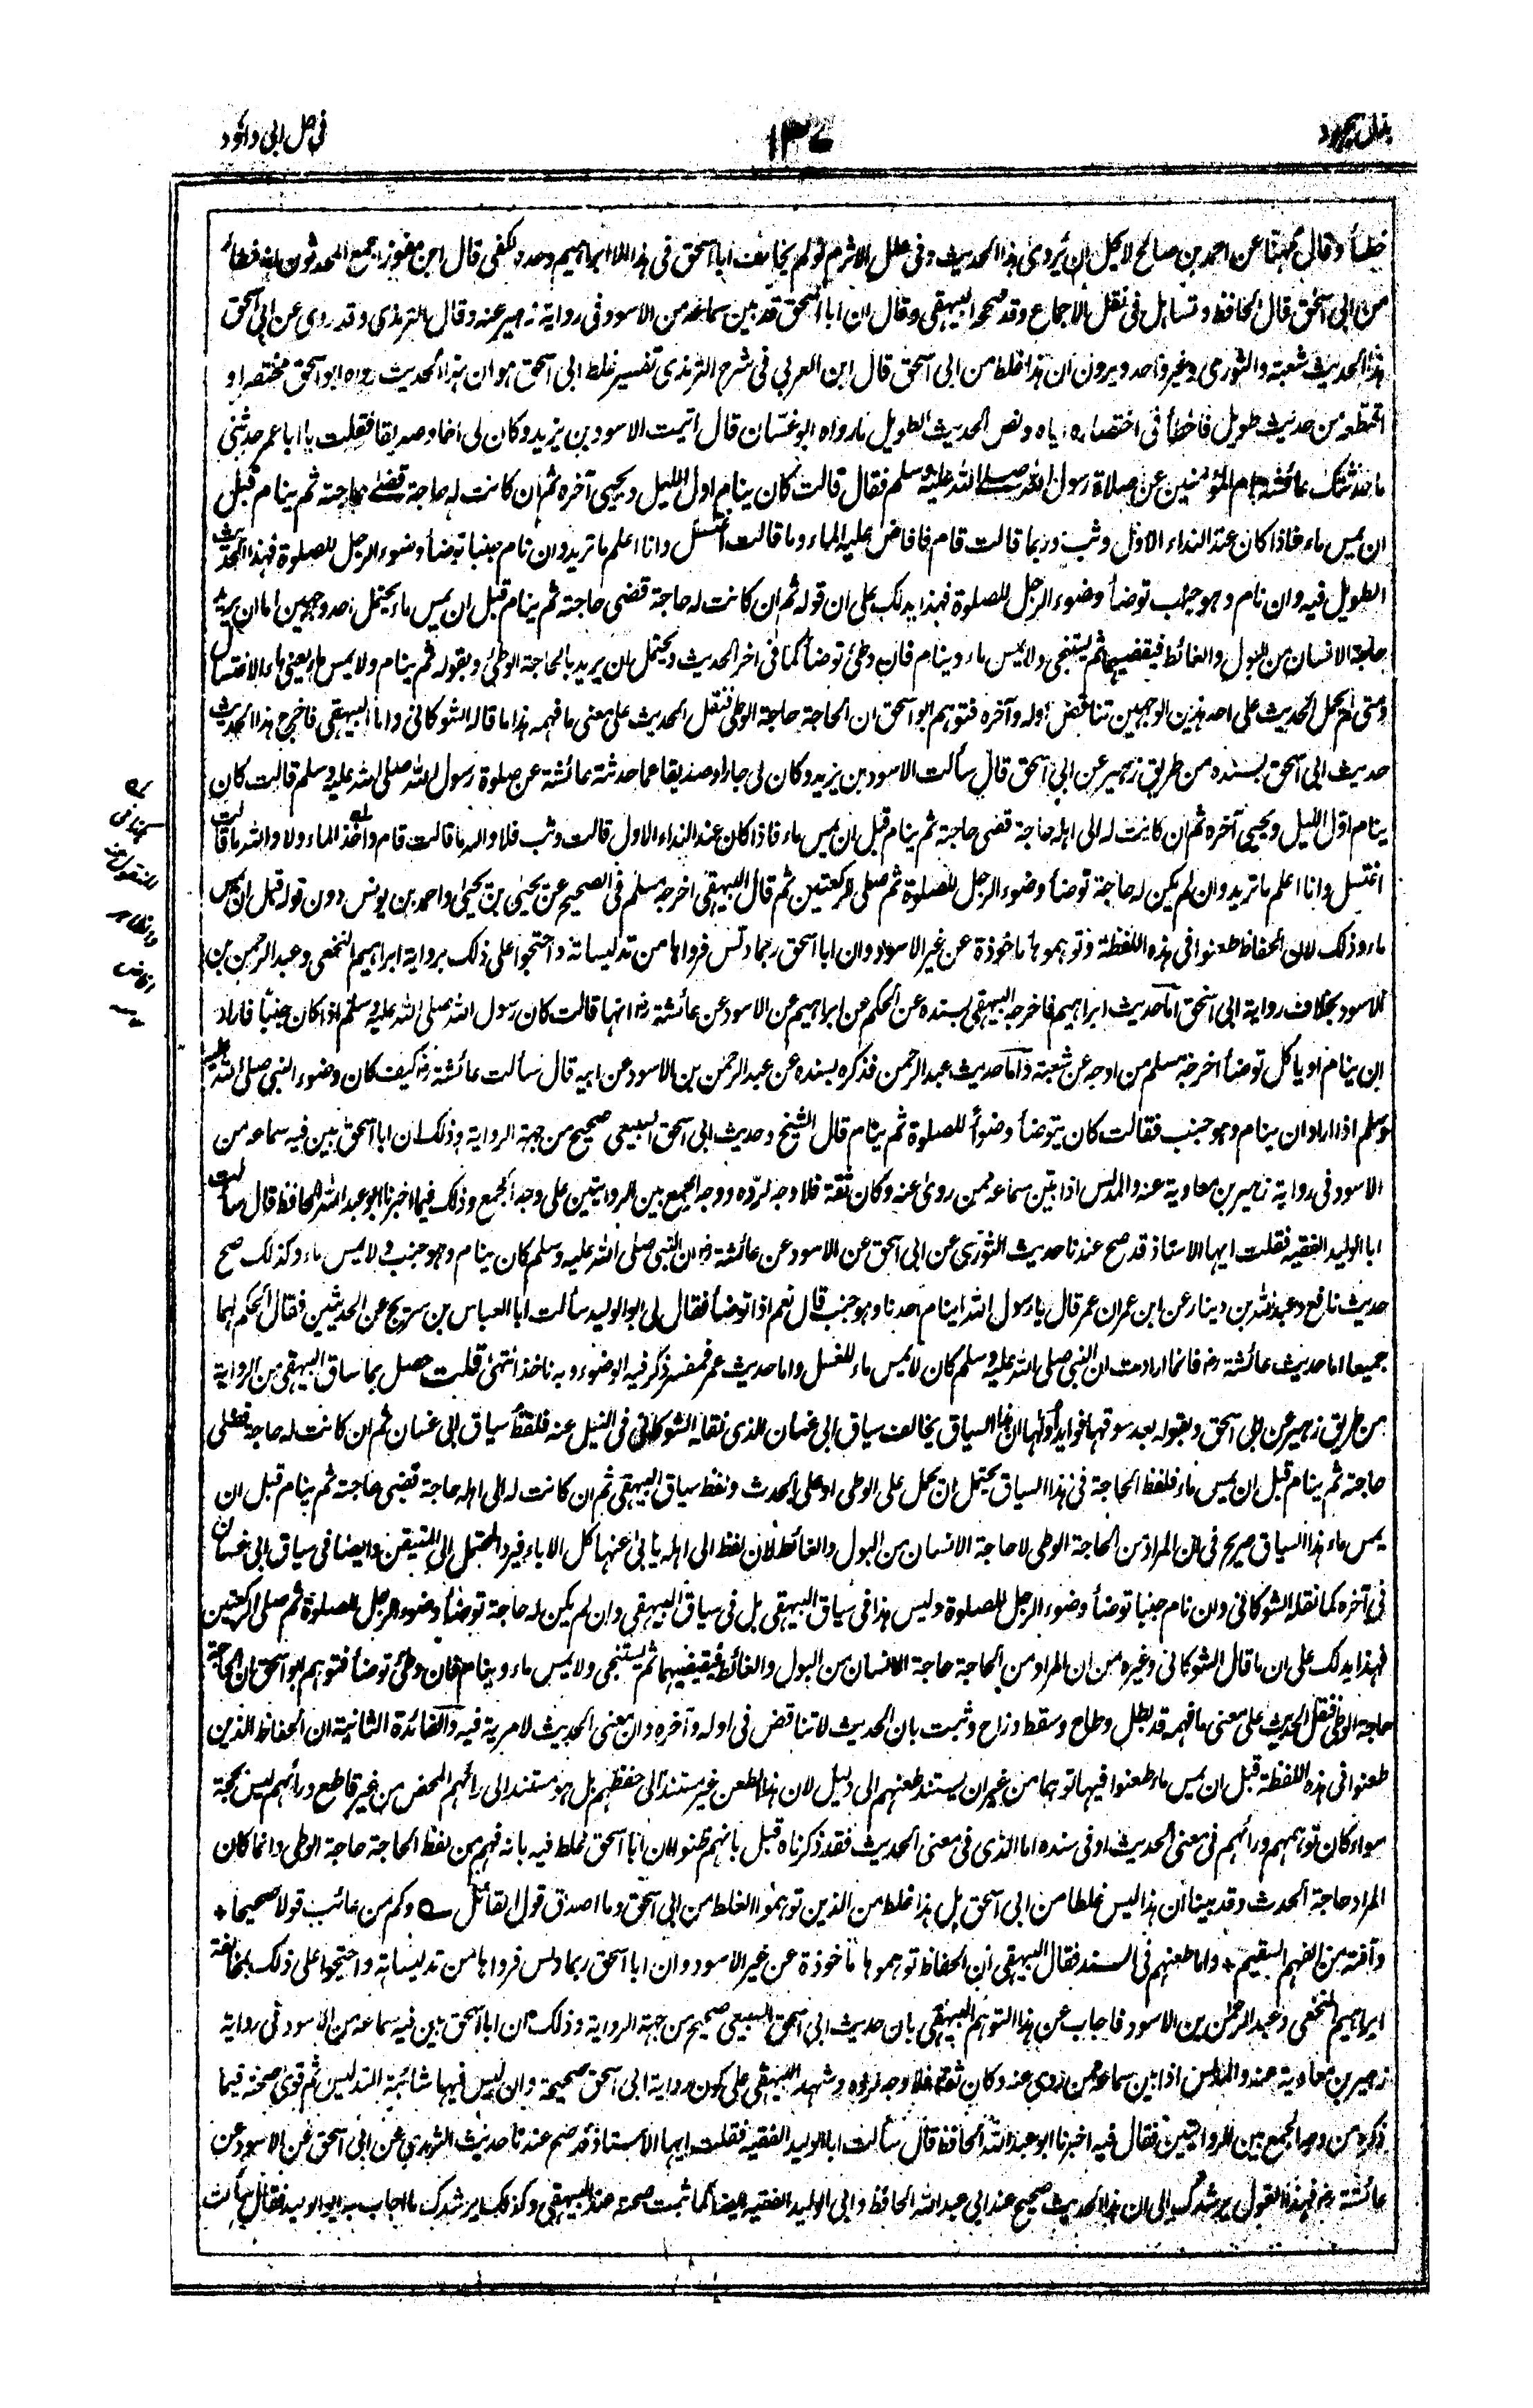 بذل المجهود
١٣٧
في حل ابي داؤد
خطأ وقال مهنا عن احمد بن صالح لا يحل ان يروى هذا الحديث وفى علل الاثرم لو لم يخالف ابا اسحق فى هذا الا ابراهيم وحده لكفى قال ابن مفوز اجمع المحدثون انه خطأ
من ابى اسحق قال الحافظ وتساهل فى نقل الاجماع وقد صححه البيهقى وقال ان ابا اسحق قد بين سماعه من الاسود فى رواية زهير عنه وقال الترمذى وقد روى عن ابى اسحق
هذا الحديث شعبة والثورى وغير واحد ويرون ان هذا غلط من ابى اسحق قال ابن العربى فى شرح الترمذى تفسير غلط ابى اسحق هو ان هذا الحديث رواه ابو اسحق مختصرا و
اقتطعه من حديث طويل فاخطأ فى اختصاره اياه ونص الحديث الطويل ما رواه ابو غسان قال اتيت الاسود بن يزيد وكان لى اخا وصديقا فقلت يا ابا عمر حدثنى
ما حدثتك عائشة ام المؤمنين عن صلاة رسول الله صلى الله عليه وسلم فقال قالت كان ينام اول الليل ويحيى آخره ثم ان كانت له حاجة قضى حاجته ثم ينام قبل
ان يمس ماء فاذا كان عند النداء الاول وثب وربما قالت قام فافاض عليه الماء وما قالت اغتسل وانا اعلم ما تريد وان نام جنبا توضأ وضوء الرجل للصلوة فهذا الحديث
الطويل فيه وان نام وهو جنب توضأ وضوء الرجل للصلوة فهذا يدلك على ان قوله ثم ان كانت له حاجة قضى حاجته ثم ينام قبل ان يمس ماء يحتمل احد وجهين اما ان يريد
حاجة الانسان من البول والغائط فيقضيهما ثم يستنجى ولا يمس ماء وينام فان وطئ توضأ كما فى اخر الحديث ويحتمل ان يريد بالحاجة الوطئ وبقوله ثم ينام ولا يمس ماء يعنى ماء الاغتسال
ومتى لم يحمل الحديث على احد هذين الوجهين تناقض اوله وآخره فتوهم ابو اسحق ان الحاجة حاجة الوطى فنقل الحديث على معنى ما فهمه هذا ما قاله الشوكانى واما البيهقى فاخرج هذا الحديث
حديث ابى اسحق بسنده من طريق زهير عن ابى اسحق قال سألت الاسود بن يزيد وكان لى جارا وصديقا عما حدثته عائشة عن صلوة رسول الله صلى الله عليه وسلم قالت كان
ينام اول الليل ويحيى آخره ثم ان كانت له الى اهله حاجة قضى حاجة ثم ينام قبل ان يمس ماء فاذا كان عند النداء الاول قالت وثب فلا والله ما قالت قام واخذ الماء ولا والله ما قالت
اغتسل وانا اعلم ما تريد وان لم يكن له حاجة توضأ وضوء الرجل للصلوة ثم صلى الركعتين ثم قال البيهقى اخرجه مسلم فى الصحيح عن يحيى بن يحيى واحمد بن يونس دون قوله قبل ان يمس
ماء وذلك لان الحفاظ طعنوا فى هذه اللفظة وتوهموها ماخوذة عن غير الاسود وان ابا اسحق ربما دلس فرواها من تدليساته واحتجوا على ذلك برواية ابراهيم النخعى وعبد الرحمن بن
الاسود بخلاف رواية ابى اسحق اما حديث ابراهيم فاخرجه البيهقى بسنده عن الحكم عن ابراهيم عن الاسود عن عائشة رض انها قالت كان رسول الله صلى الله عليه وسلم اذا كان جنبا فاراد
ان ينام او ياكل توضأ اخرجه مسلم من اوجه عن شعبة واما حديث عبد الرحمن فذكره بسنده عن عبد الرحمن بن الاسود عن ابيه قال سألت عائشة رض كيف كان وضوء النبى صلى الله عليه
وسلم اذا اراد ان ينام وهو جنب فقالت كان يتوضأ وضوأ للصلوة ثم ينام قال الشيخ وحديث ابى اسحق السبيعى صحيح من جهة الرواية وذلك ان ابا اسحق بين فيه سماعه من
الاسود فى رواية زهير بن معاوية عنه والمدلس اذا بين سماعه ممن روى عنه وكان ثقة فلا وجه لرده ووجه الجمع بين الروايتين على وجه الجمع وذلك فيما اخبرنا ابو عبد الله الحافظ قال سألت
ابا الوليد الفقيه فقلت ايها الاستاذ قد صح عندنا حديث الثورى عن ابى اسحق عن الاسود عن عائشة رض ان النبى صلى الله عليه وسلم كان ينام وهو جنب ولا يمس ماء وكذلك صح
حديث نافع وعبد الله بن دينار عن ابن عمر ان عمر قال يا رسول الله اينام احدنا وهو جنب قال نعم اذا توضأ فقال لى ابو الوليد سألت ابا العباس بن سريج عن الحديثين فقال الحكم لهما
جميعا اما حديث عائشة رض فانما ارادت ان النبى صلى الله عليه وسلم كان لا يمس ماء للغسل واما حديث عمر فمفسر ذكر فيه الوضوء وبه ناخذ انتهى قلت حصل بما ساق البيهقى من الرواية
من طريق زهير عن ابى اسحق وبقوله بعد سوقها فوائد اولها ان هذا السياق يخالف سياق ابى غسان الذى نقله الشوكانى فى النيل عنه فلفظ سياق ابى غسان ثم ان كانت له حاجة قضى
حاجة ثم ينام قبل ان يمس ماء فلفظ الحاجة فى هذا السياق يحتمل ان يحمل على الوطى او على الحدث ولفظ سياق البيهقى ثم ان كانت له الى اهله حاجة قضى حاجة ثم ينام قبل ان
يمس ماء هذا السياق صريح فى ان المراد من الحاجة الوطى لا حاجة الانسان من البول والغائط لان لفظ الى اهله يابى عنها كل الاباء فيرد المحتمل الى المتيقن وايضا فى سياق ابى غسان
فى آخره كما نقله الشوكانى وان نام جنبا توضأ وضوء الرجل للصلوة وليس هذا فى سياق البيهقى بل فى سياق البيهقى وان لم يكن له حاجة توضأ وضوء الرجل للصلوة ثم صلى الركعتين
فهذا يدلك على ان ما قال الشوكانى وغيره من ان المراد من الحاجة حاجة الانسان من البول والغائط فيقضيهما ثم يستنجى ولا يمس ماء وينام فان وطئ توضأ فتوهم ابو اسحق ان الحاجة
حاجة الوطى فنقل الحديث على معنى ما فهمه قد بطل وطاح وسقط وزاح وثبت بان الحديث لا تناقض فى اوله وآخره وان معنى الحديث لا مرية فيه والفائدة الثانية ان الحفاظ الذين
طعنوا فى هذه اللفظة قبل ان يمس ماء طعنوا فيها توهما من غير ان يستند طعنهم الى دليل لان هذا الطعن غير مستند الى حفظهم بل هو مستند الى رائهم المحض من غير قاطع ورائهم ليس بحجة
سواء كان توهمهم ورائهم فى معنى الحديث او فى سنده اما الذى فى معنى الحديث فقد ذكرناه قبل بانهم ظنوا ان ابا اسحق غلط فيه بانه فهم من لفظ الحاجة حاجة الوطى وانما كان
المراد حاجة الحدث وقد بينا ان هذا ليس غلطا من ابى اسحق بل هذا غلط من الذين توهموا الغلط من ابى اسحق وما اصدق قول القائل وكم من عائب قولا صحيحا +
وآفته من الفهم السقيم + واما طعنهم فى السند فقال البيهقى ان الحفاظ توهموها ماخوذة عن غير الاسود وان ابا اسحق ربما دلس فرواها من تدليساته واحتجوا على ذلك بمخالفة
ابراهيم النخعى وعبد الرحمن بن الاسود فاجاب عن هذا التوهم البيهقى بان حديث ابى اسحق السبيعى صحيح من جهة الرواية وذلك ان ابا اسحق بين فيه سماعه من الاسود فى رواية
زهير بن معاوية عنه والمدلس اذا بين سماعه ممن روى عنه وكان ثقة فلا وجه لرده وشهد البيهقى على كون رواية ابى اسحق صحيحة وان ليس فيها شائبة التدليس ثم قوى صحته فيما
ذكره من وجه الجمع بين الروايتين فقال فيه اخبرنا ابو عبد الله الحافظ قال سألت ابا الوليد الفقيه فقلت ايها الاستاذ قد صح عندنا حديث الثورى عن ابى اسحق عن الاسود عن
عائشة رض فهذا القول يرشدك الى ان هذا الحديث صحيح عند ابى عبد الله الحافظ وابى الوليد الفقيه ايضا كما ثبت صحته عند البيهقى وكذلك يرشدك ما اجاب به ابو الوليد فقال سألت
له
كذا فى
المنقول عنه
والظاهر
افاض